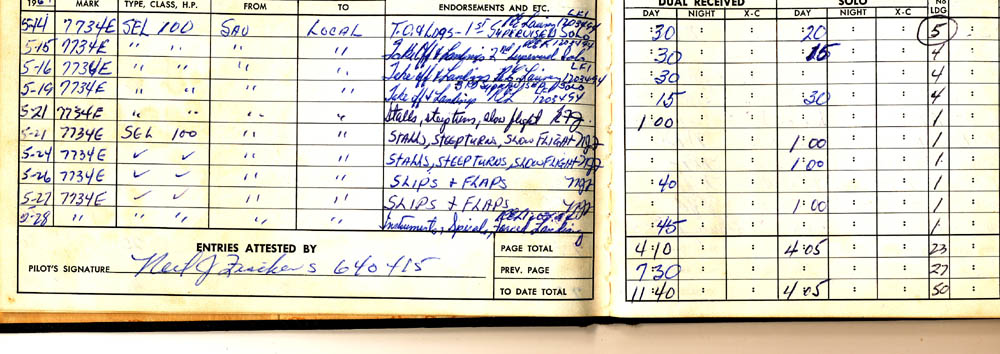 196
MARK TYPE, CLASS, H.P. FROM TO ENDORSEMENTS AND ETC. DUAL RECEIVED SOLO
DAY NIGHT X-C DAY NIGHT X-C No LDG
5-14 7734E SEL 100 SAV LOCAL T.O. & Ldgs - 1st SUPERVISED SOLO CFI :30 :20 5
5-15 7734E " " " " Takeoff & Landings 2nd Supervised Solo :30 :15 4
5-16 7734E " " " " Take off & Landings CFI :30 4
5-19 7734E " " " " Take off & Landings 3rd Supervised SOLO :15 :30 4
5-21 7734E " " " " Stalls, steep turns, slow flight 1:00 1
5-21 7734E SEL 100 " " STALLS, STEEP TURNS, SLOW FLIGHT NJZ 1:00 1
5-24 7734E ✓ ✓ " " STALLS, STEEP TURNS, SLOW FLIGHT NJZ 1:00 1
5-26 7734E ✓ ✓ " " SLIPS & FLAPS NJZ :40 1
5-27 7734E ✓ ✓ " " SLIPS & FLAPS NJZ 1:00 1
5-28 " " " " " Instruments, Spirals, Forced Landing :45 1
ENTRIES ATTESTED BY PAGE TOTAL 4:10 4:05 23
PILOT'S SIGNATURE Neil J S 640415 PREV. PAGE 7:30 27
TO DATE TOTAL 11:40 4:05 50